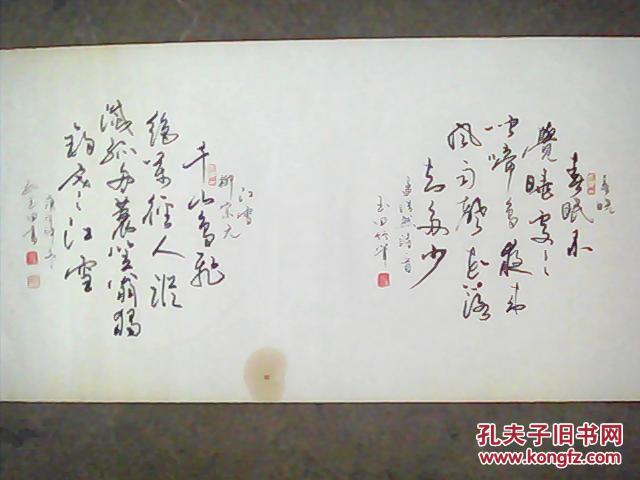 春晓
春眠不
覺曉處々
闻啼鸟夜来
風雨聲花落
知多少
孟浩然诗一首
江雪
柳宗元
千山鸟飛
絶萬徑人蹤
滅孤舟蓑笠翁獨
釣寒江雪
孔夫子旧书网
www.kongfz.com